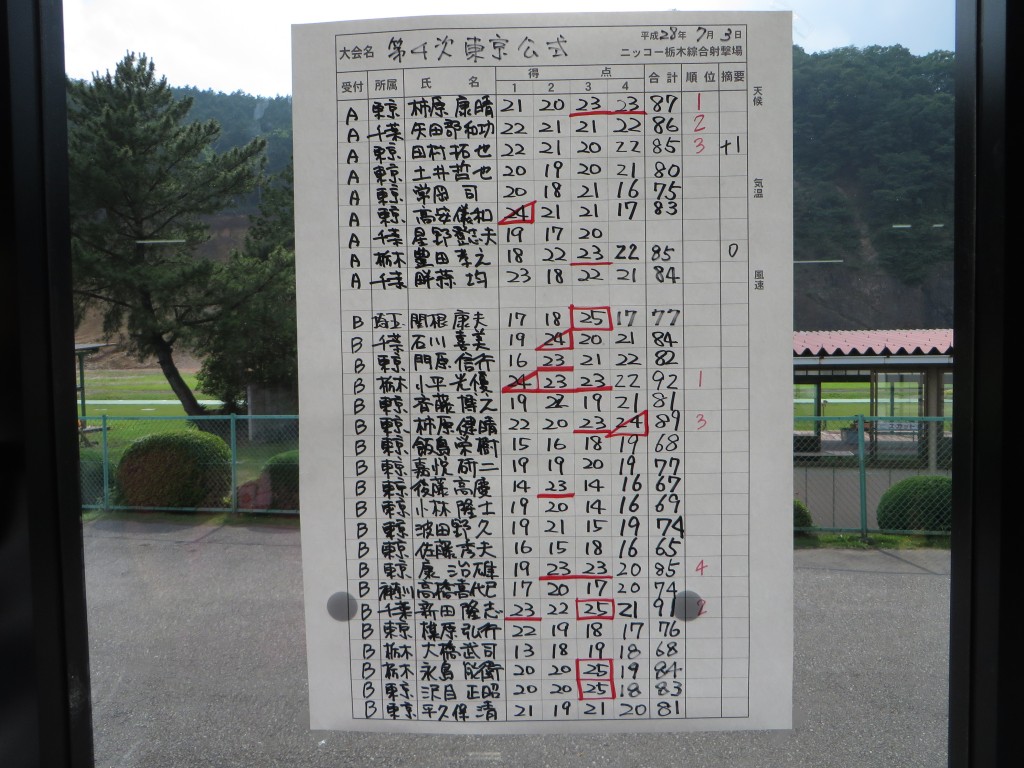 平成28年 7月 3日
大会名 第4次東京公式 ニッコー栃木綜合射撃場
受付 所属 氏 名 得 点 合計 順位 摘要
1 2 3 4
天候
A 東京 柿原康晴 21 20 23 23 87 1
A 千葉 矢田部和功 22 21 21 22 86 2
A 東京 田村拓也 22 21 20 22 85 3 +1
A 東京 土井哲也 20 19 20 21 80
気温
A 東京 常岡司 20 18 21 16 75
A 東京 高安俊和 24 21 21 17 83
A 千葉 星野 夫 19 17 20
A 栃木 豊田孝之 18 22 23 22 85 0
A 千葉 均 23 18 22 21 84
風速
B 埼玉 関根康夫 17 18 25 17 77
B 千葉 石川喜美 19 24 20 21 84
B 東京 門原信行 16 23 21 22 82
B 栃木 小平光優 24 23 23 22 92 1
B 東京 斉藤博久 19 22 19 21 81
B 東京 柿原健晴 22 20 23 24 89 3
B 東京 飯島栄樹 15 16 18 19 68
B 東京 嘉悦研二 19 19 20 19 77
B 東京 後藤高慶 14 23 14 16 67
B 東京 小林隆士 19 20 14 16 69
B 東京 波田野久 19 21 15 19 74
B 東京 佐藤秀夫 16 15 18 16 65
B 東京 康治雄 19 23 23 20 85 4
B 神奈川 高橋喜代巳 17 20 17 20 74
B 千葉 新田隆志 23 22 25 21 91 2
B 東京 原弘行 22 19 18 17 76
B 栃木 大橋武司 13 18 19 18 68
B 栃木 永島 衛 20 20 25 19 84
B 東京 沢目正昭 20 20 25 18 83
B 東京 平久保清 21 19 21 20 81